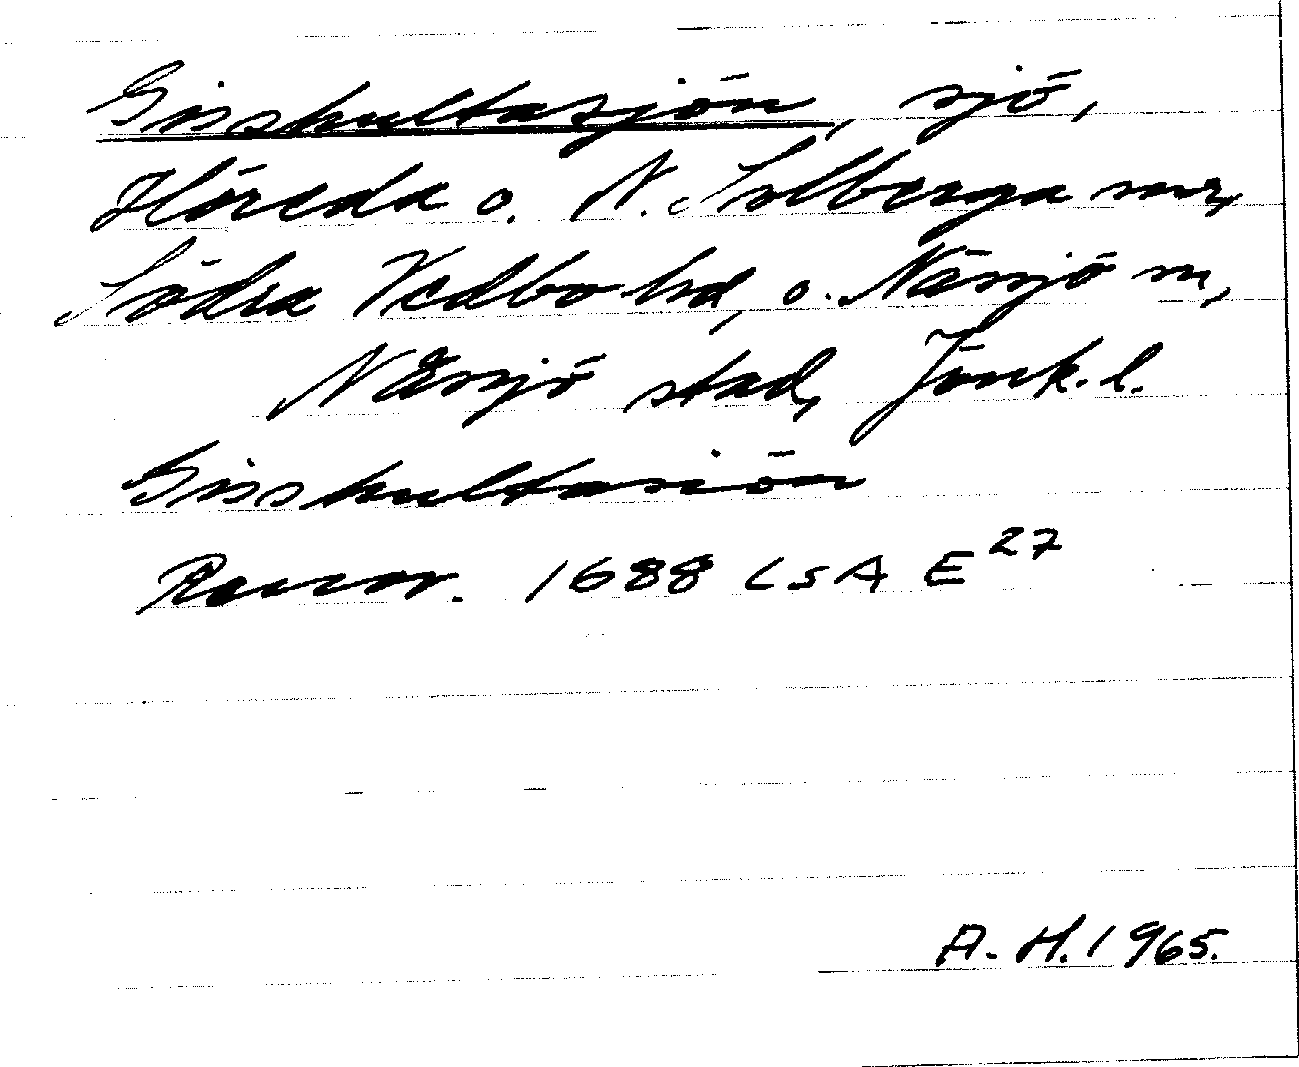 Gisshultasjön, sjö,
Höreda o. N. Solberga snr,
Södra Vedbo hd, o. Nässjö sn,
Nässjö stad, Jönk. l.
Gisshultasiön
Rannsakn. 1688 LSA E27
A. H. 1965.